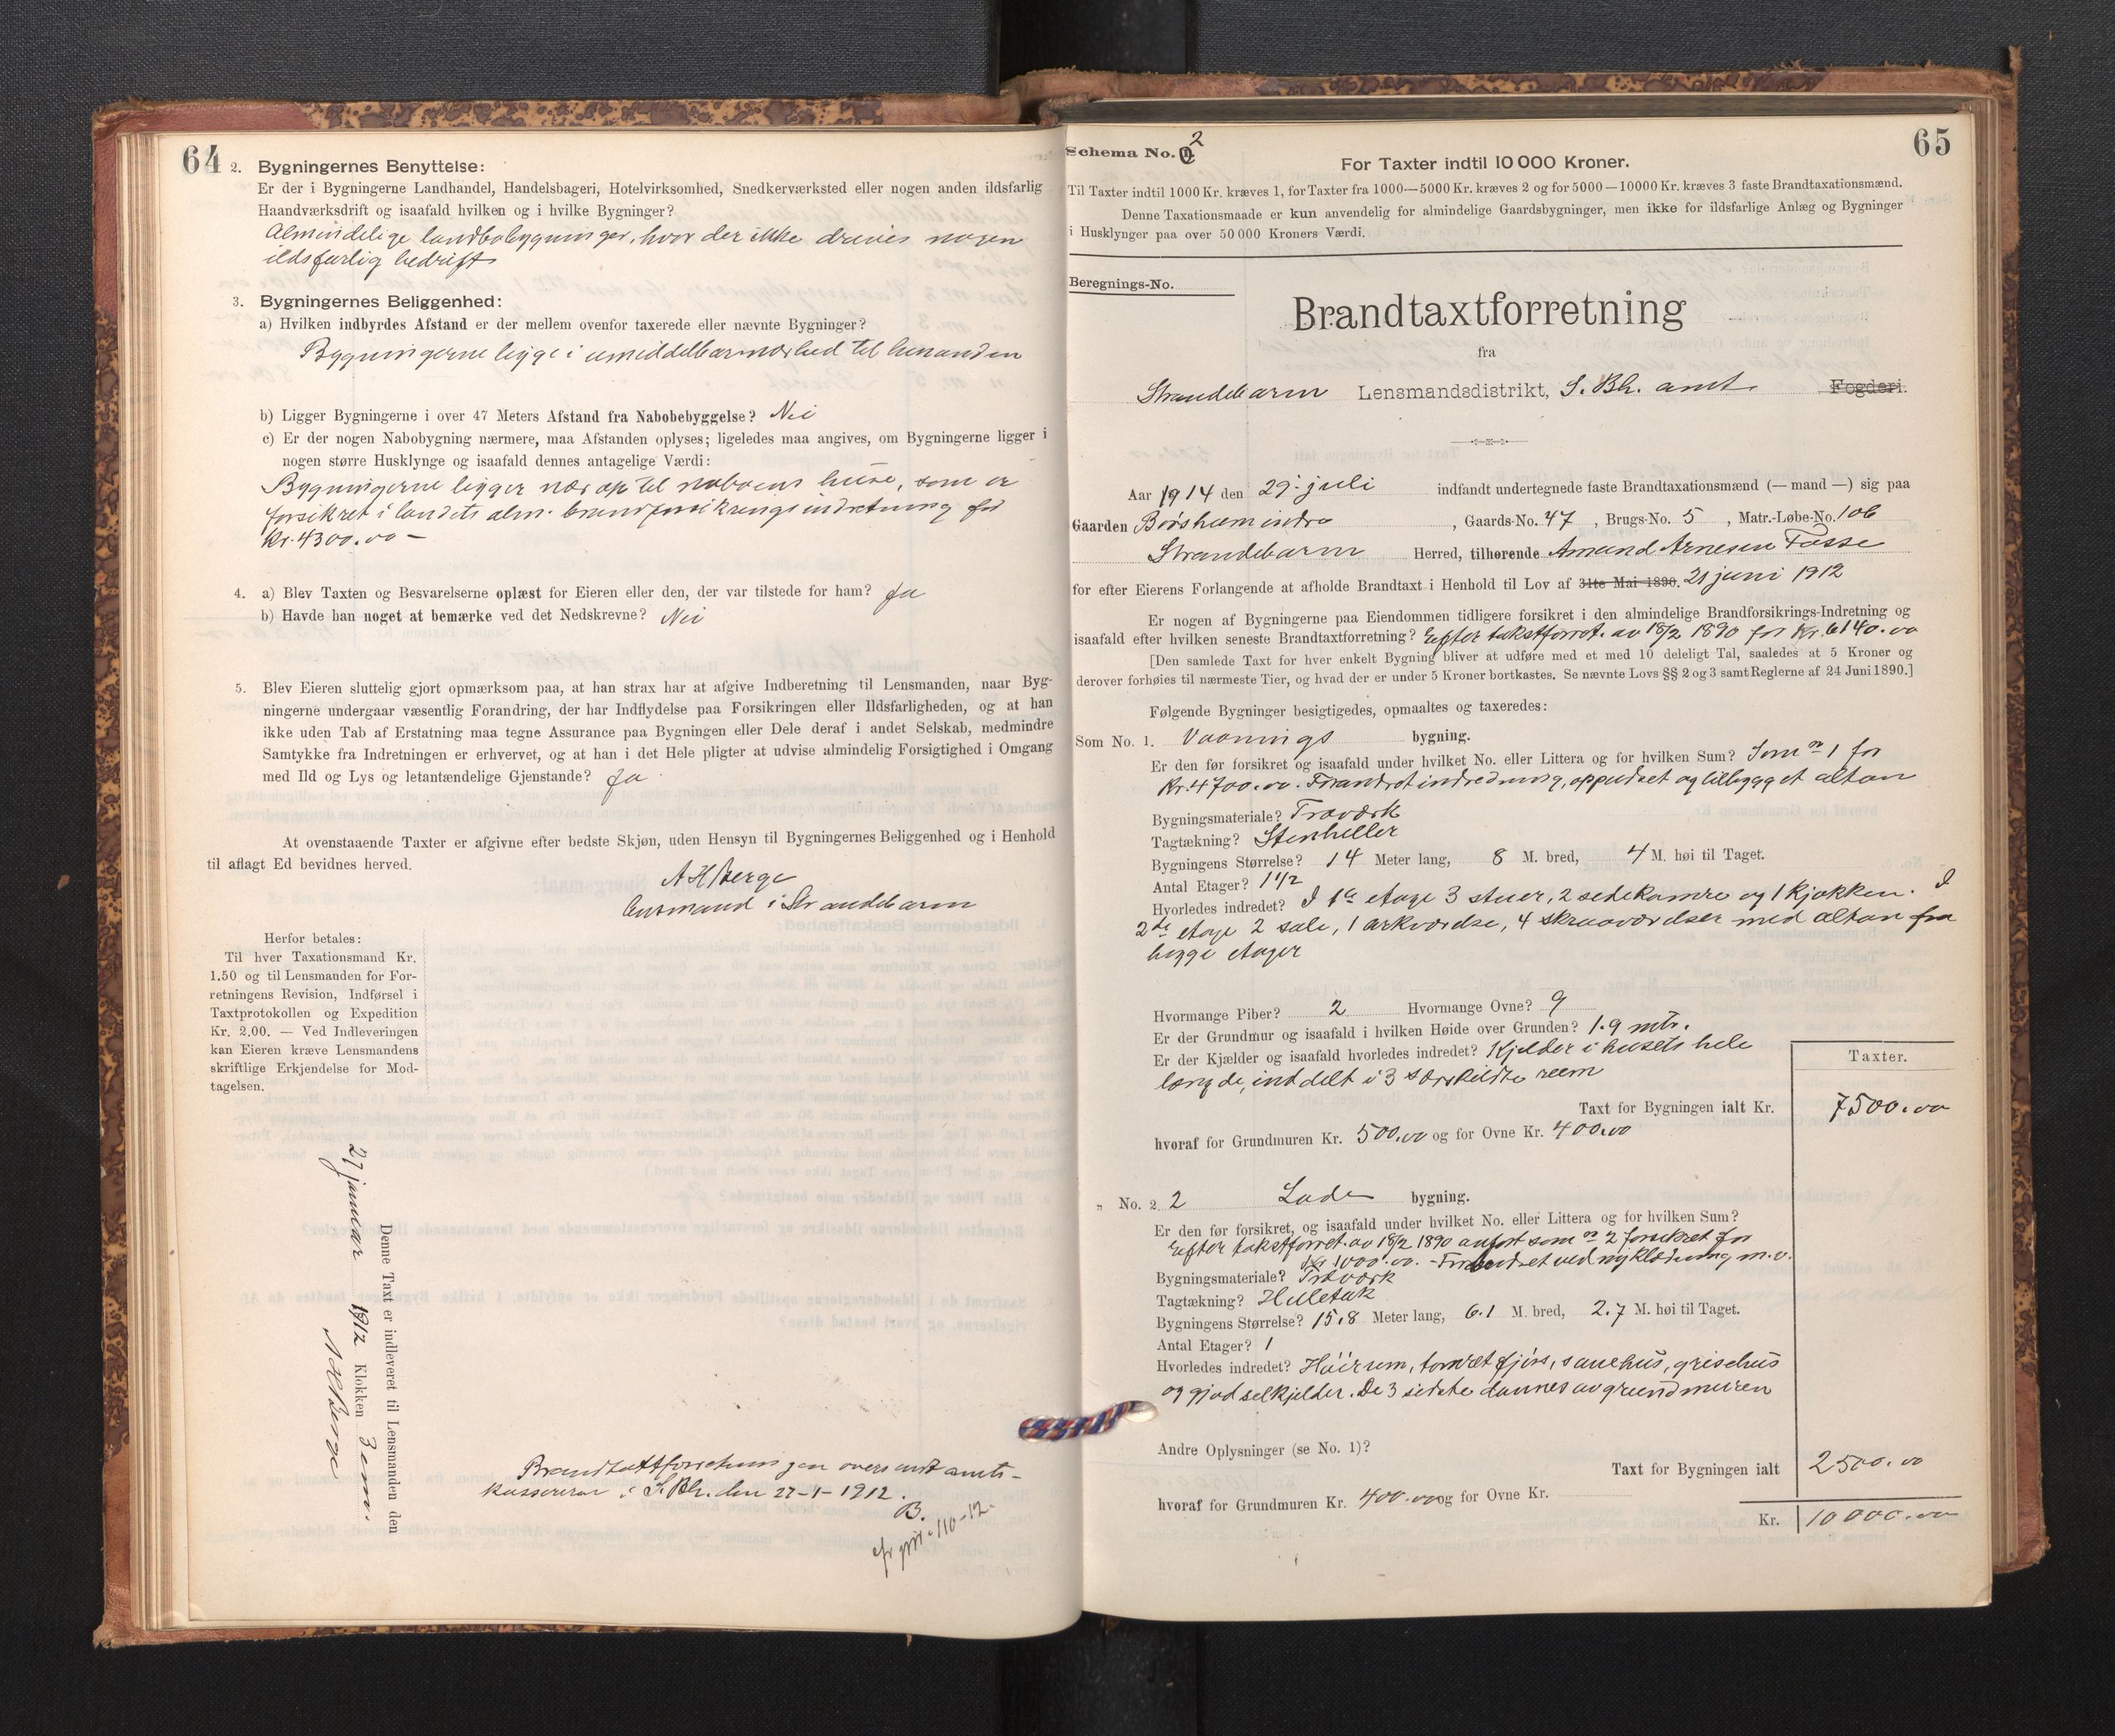 64
2. Bygningernes Benyttelse:
Er der i Bygningerne Landhandel, Handelsbageri, Hotelvirksomhed, Snedkerværksted eller nogen anden ildsfarlig
Haandværksdrift og isaafald hvilken og i hvilke Bygninger?
Almindelige landbobygninger, hvor der ikke drives nogen
ildsfarlig bedrift
3. Bygningernes Beliggenhed:
a) Hvilken indbyrdes Afstand er der mellem ovenfor taxerede eller nævnte Bygninger?
Bygningerne ligge i umiddelbar nærhed til hinanden
b) Ligger Bygningerne i over 47 Meters Afstand fra Nabobebyggelse? Nei
c) Er der nogen Nabobygning nærmere, maa Afstanden oplyses; ligeledes maa angives, om Bygningerne ligger i
nogen større Husklynge og isaafald dennes antagelige Værdi:
Bygningerne ligger nær op til naboens huse, som er
forsikret i landets alm. brandforsikringsindretning for
Kr. 4300.00 –
4. a) Blev Taxten og Besvarelserne oplæst for Eieren eller den, der var tilstede for ham? Ja
b) Havde han noget at bemærke ved det Nedskrevne? Nei
5. Blev Eieren sluttelig gjort opmærksom paa, at han strax har at afgive Indberetning til Lensmanden, naar Byg-
ningerne undergaar væsentlig Forandring, der har Indflydelse paa Forsikringen eller Ildsfarligheden, og at han
ikke uden Tab af Erstatning maa tegne Assurance paa Bygningen eller Dele deraf i andet Selskab, medmindre
Samtykke fra Indretningen er erhvervet, og at han i det Hele pligter at udvise almindelig Forsigtighed i Omgang
med Ild og Lys og letantændelige Gjenstande? Ja
At ovenstaaende Taxter er afgivne efter bedste Skjøn, uden Hensyn til Bygningernes Beliggenhed og i Henhold
til aflagt Ed bevidnes herved.
A H Berge
Lensmand i Strandebarm
Herfor betales:
Til hver Taxationsmand Kr.
1.50 og til Lensmanden for For-
retningens Revision, Indførsel i
Taxtprotokollen og Expedition
Kr. 2.00. — Ved Indleveringen
kan Eieren kræve Lensmandens
skriftlige Erkjendelse for Mod-
tagelsen.
Denne Taxt er indleveret til Lensmanden den
27 januar 1912 Klokken 3 em.
A H Berge
Brandtaxtforretningen oversendt amts-
kassereren i S. Bh. den 27-1-1912.
B.
65
Schema No. 2
For Taxter indtil 10 000 Kroner.
Til Taxter indtil 1000 Kr. kræves 1, for Taxter fra 1000—5000 Kr. kræves 2 og for 5000—10000 Kr. kræves 3 faste Brandtaxationsmænd.
Denne Taxationsmaade er kun anvendelig for almindelige Gaardsbygninger, men ikke for ildsfarlige Anlæg og Bygninger
i Husklynger paa over 50 000 Kroners Værdi.
Beregnings-No.
Brandtaxtforretning
fra
Strandebarm Lensmandsdistrikt, S. Bh. amt. Fogderi.
Aar 1914 den 29. juli indfandt undertegnede faste Brandtaxationsmænd (— mand —) sig paa
Gaarden Børsheim indre, Gaards-No. 47, Brugs-No. 5, Matr.-Løbe-No. 106
Strandebarm Herred, tilhørende Amund Arnesen Fosse
for efter Eierens Forlangende at afholde Brandtaxt i Henhold til Lov af 31te Mai 1890. 21 juni 1912
Er nogen af Bygningerne paa Eiendommen tidligere forsikret i den almindelige Brandforsikrings-Indretning og
isaafald efter hvilken seneste Brandtaxtforretning? Efter takstforret. av 18/2 1890 for Kr. 6140.00
[Den samlede Taxt for hver enkelt Bygning bliver at udføre med et med 10 deleligt Tal, saaledes at 5 Kroner og
derover forhøies til nærmeste Tier, og hvad der er under 5 Kroner bortkastes. Se nævnte Lovs §§ 2 og 3 samt Reglerne af 24 Juni 1890.]
Følgende Bygninger besigtigedes, opmaaltes og taxeredes:
Som No. 1. Vaanings bygning.
Er den før forsikret og isaafald under hvilket No. eller Littera og for hvilken Sum? Som no 1 for
Kr. 4700.00. Forandret indredning, oppudset og tilbygget altan
Bygningsmateriale? Træværk
Tagtækning? Stenheller
Bygningens Størrelse? 14 Meter lang, 8 M. bred, 4 M. høi til Taget.
Antal Etager? 1 1/2
Hvorledes indredet? I 1ste etage 3 stuer, 2 sidekamre og 1 kjøkken. I
2de etage 2 sale, 1 arkværelse, 4 skraaværelser med altan fra
begge etager
Hvormange Piber? 2 Hvormange Ovne? 9
Er der Grundmur og isaafald i hvilken Høide over Grunden? 1.9 mtr.
Er der Kjælder og isaafald hvorledes indredet? Kjelder i husets hele
længde, inddelt i 3 særskildte rum
Taxter.
Taxt for Bygningen ialt Kr. 7500.00
hvoraf for Grundmuren Kr. 500.00 og for Ovne Kr. 400.00
" No. 2. 2 Lade bygning.
Er den før forsikret, og isaafald under hvilket No. eller Littera og for hvilken Sum?
Efter takstforret. av 18/2 1890 anført som no 2 forsikret for
Kr 1000.00. - Forandret ved nyklædning m.v.
Bygningsmateriale? Træværk
Tagtækning? Helletak
Bygningens Størrelse? 15.8 Meter lang, 6.1 M. bred, 2.7 M. høi til Taget.
Antal Etager? 1
Hvorledes indredet? Høirum, tømret fjøs, sauehus, grisehus
og gjødselkjelder. De 3 sidste dannes av grundmuren
Andre Oplysninger (se No. 1)?
Taxt for Bygningen ialt 2500.00
hvoraf for Grundmuren Kr. 400.00 og for Ovne Kr.
Kr. 10000.00